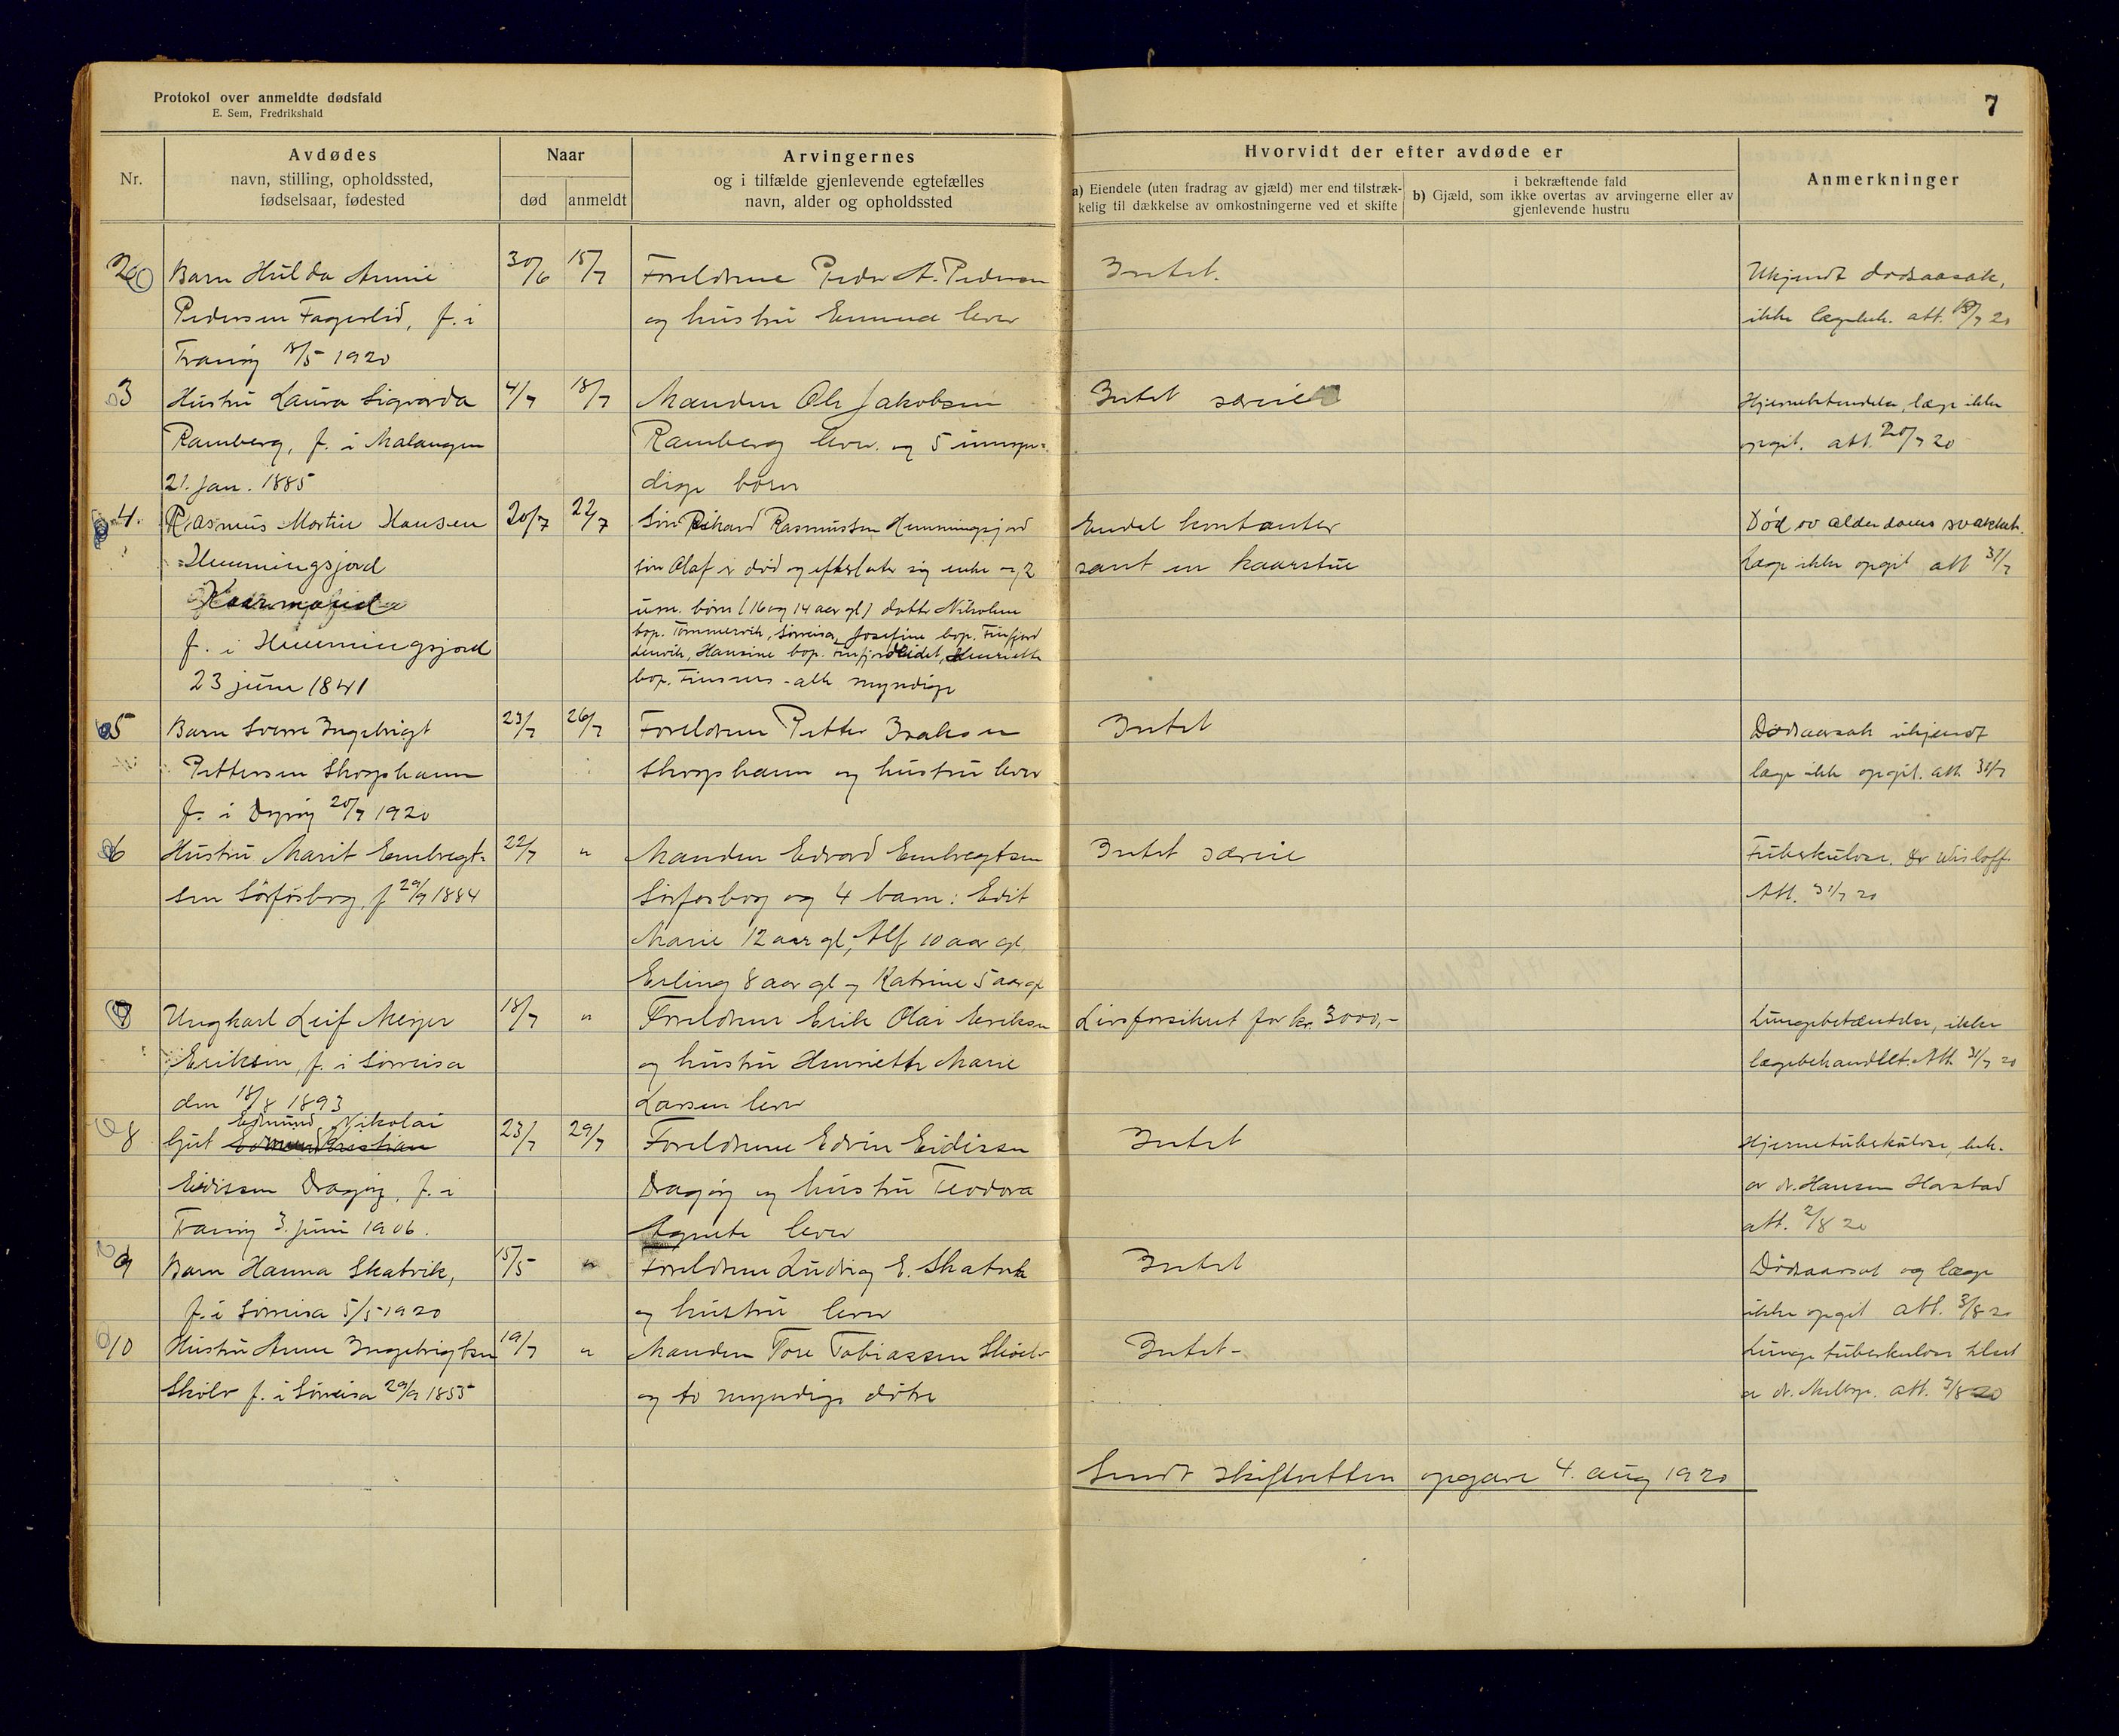 Protokol over anmeldte dødsfald
E. Sem, Fredrikshald
7
Nr.
Avdødes
navn, stilling, opholdssted,
fødselsaar, fødested
Naar
død
anmeldt
Arvingernes
og i tilfælde gjenlevende egtefælles
navn, alder og opholdssted
Hvorvidt der efter avdøde er
a) Eiendele (uten fradrag av gjæld) mer end tilstræk-
kelig til dækkelse av omkostningerne ved et skifte
i bekræftende fald
b) Gjæld, som ikke overtas av arvingerne eller av
gjenlevende hustru
Anmerkninger
2 Barn Hulda Annie 30/6 15/7 Foreldrene Peder A. Pedersen Intet. Ukjendt dødsaarsak,
Pedersen Fagerlid, f. i og hustru Emma lever ikke lægebeh. att. 20
Tranøy 1920
3 Hustru Laura Sigvarda 4/7 18/7 Manden Ole Jakobsen Intet særeie Hjernebetændelse, læge ikke
Ramberg, f. i Malangen Ramberg lever og 5 umyn= opgit. att. 20/7 20
21. jan. 1885 dige børn
4. Rasmus Martin Hansen 20/7 22/7 Søn Rikard Rasmussen Hemmingsjord Endel kontanter Død av alderdoms svakhet.
Hemmingsjord søn Olaf er død og efterlater sig enke og 2 samt en kaarstue Læge ikke opgit att 31/7
Kaarmand um. børn (16 og 14 aar gl) datter Nikoline
f. i Hemmingsjord bop. Tømmervik, Sørreisa, Josefine bop. Finfjord
23 juni 1841 Lenvik, Hansine bop. Finfjordeidet, Henriette
bop. Finsnes - alle myndige
5 Barn Sverre Ingebrigt 23/7 26/7 Foreldrene Petter Isaksen Intet Dødsaarsak ukjendt
Pettersen Skrogshavn Skrogshavn og hustru lever læge ikke opgit. att. 31/7
f. i Dyrøy 20/7 1920
6 Hustru Marit Embregt= 22/7 " Manden Edvard Embregtsen Intet særeie Tuberkulose. Dr Wisløff.
sen Sørførsborg, f 29/9 1884 Sørforsborg og 4 barn: Edit Att. 31/7 20
Marie 12 aar gl, Alf 10 aar gl,
Erling 8 aar gl og Katrine 5 aar gl
7 Ungkarl Leif Meyer 18/7 " Foreldrene Erik Olai Eriksen Livsforsikret for kr. 3000,- Lungebetændelse, ikke
Eriksen, f. i Sørreisa og hustru Henriette Marie lægebehandlet. Att. 31/7 20
den 18/8 1893 Larsen lever
Edmund Nikolai
8 Gut 23/7 29/7 Foreldrene Edvin Eidissen Intet Hjernetuberkulose, beh.
Eidissen Dragøy, f. i Dragøy og hustru Teodora av dr. Hansen Harstad
Tranøy 3. juni 1906. Agnete lever att. 2/8 20
9 Barn Hanna Skatvik, 15/5 " Foreldrene Ludvig E. Skatvik Intet Dødsaarsak og læge
f. i Sørreisa 5/5 1920 og hustru lever ikke opgit att. 3/8 20
10 Hustru Anne Ingebrigtsen 19/7 " Manden Tore Tobiassen Skøelv Intet - Lungetuberkulose tilset
Skölv f. i Sørreisa 29/9 1855 og to myndige døtre av dr. Melbye. att. 3/8 20
Sendt skifteretten opgave 4. aug 1920